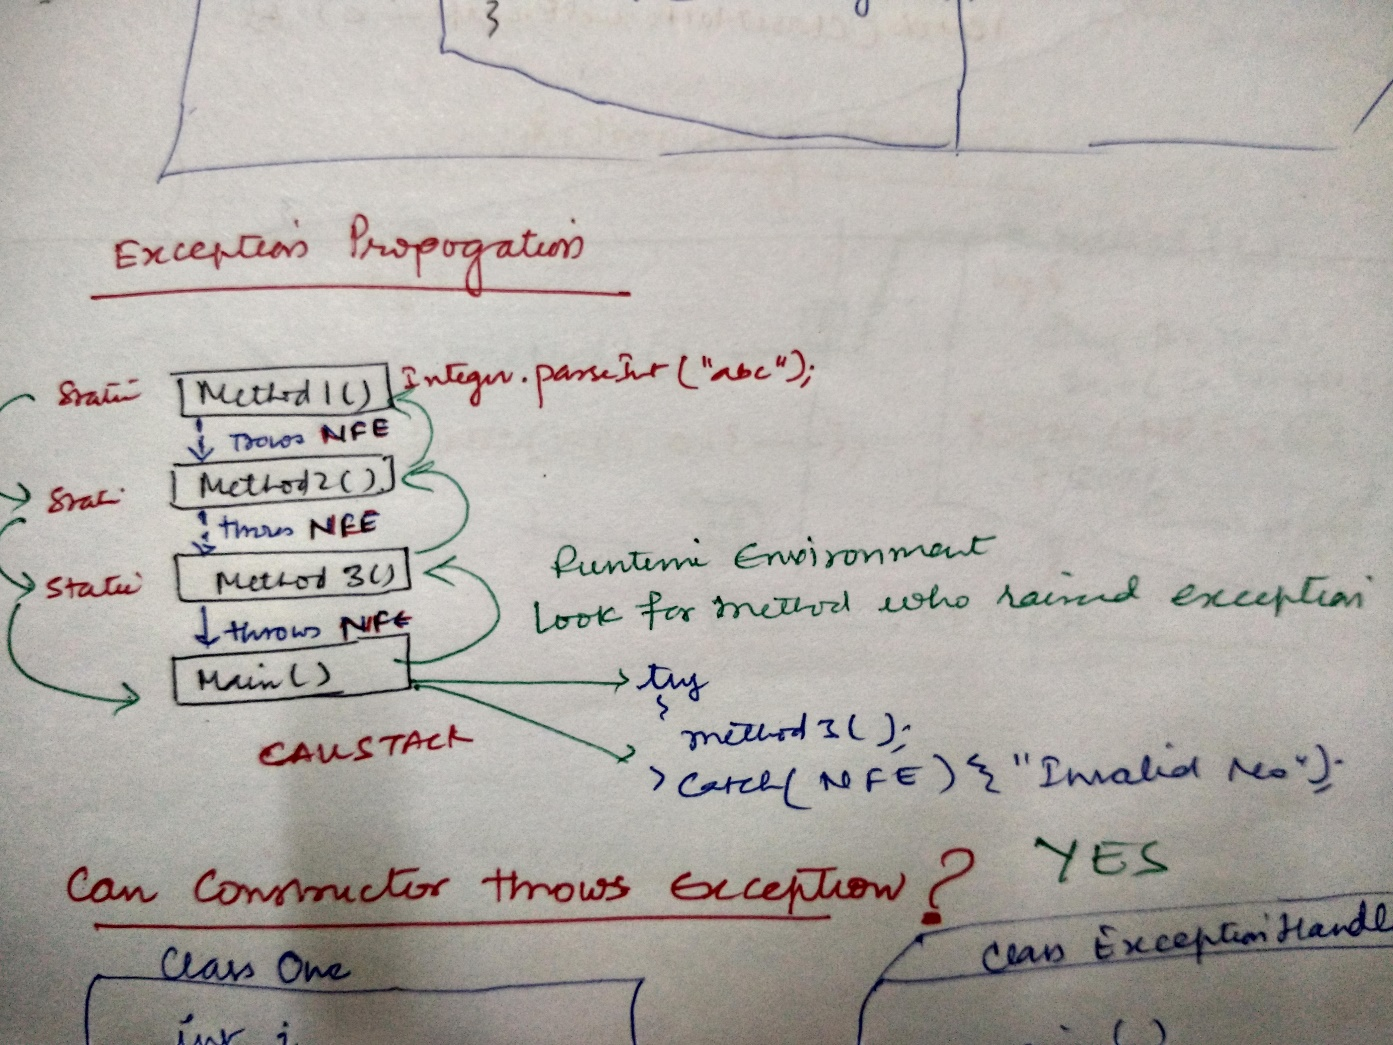 }
Exception Propogation
Static Method1() Integer.parseInt("abc");
throws NFE
Static Method2()
throws NFE
Static Method 3()
throws NFE
Main()
CALLSTACK
Runtime Environment
look for method who raised exception
try
{
method3();
} Catch( NFE ) { "Invalid No").
Can Constructor throws Exception? YES
Class One
int i
Class ExceptionHandle
()